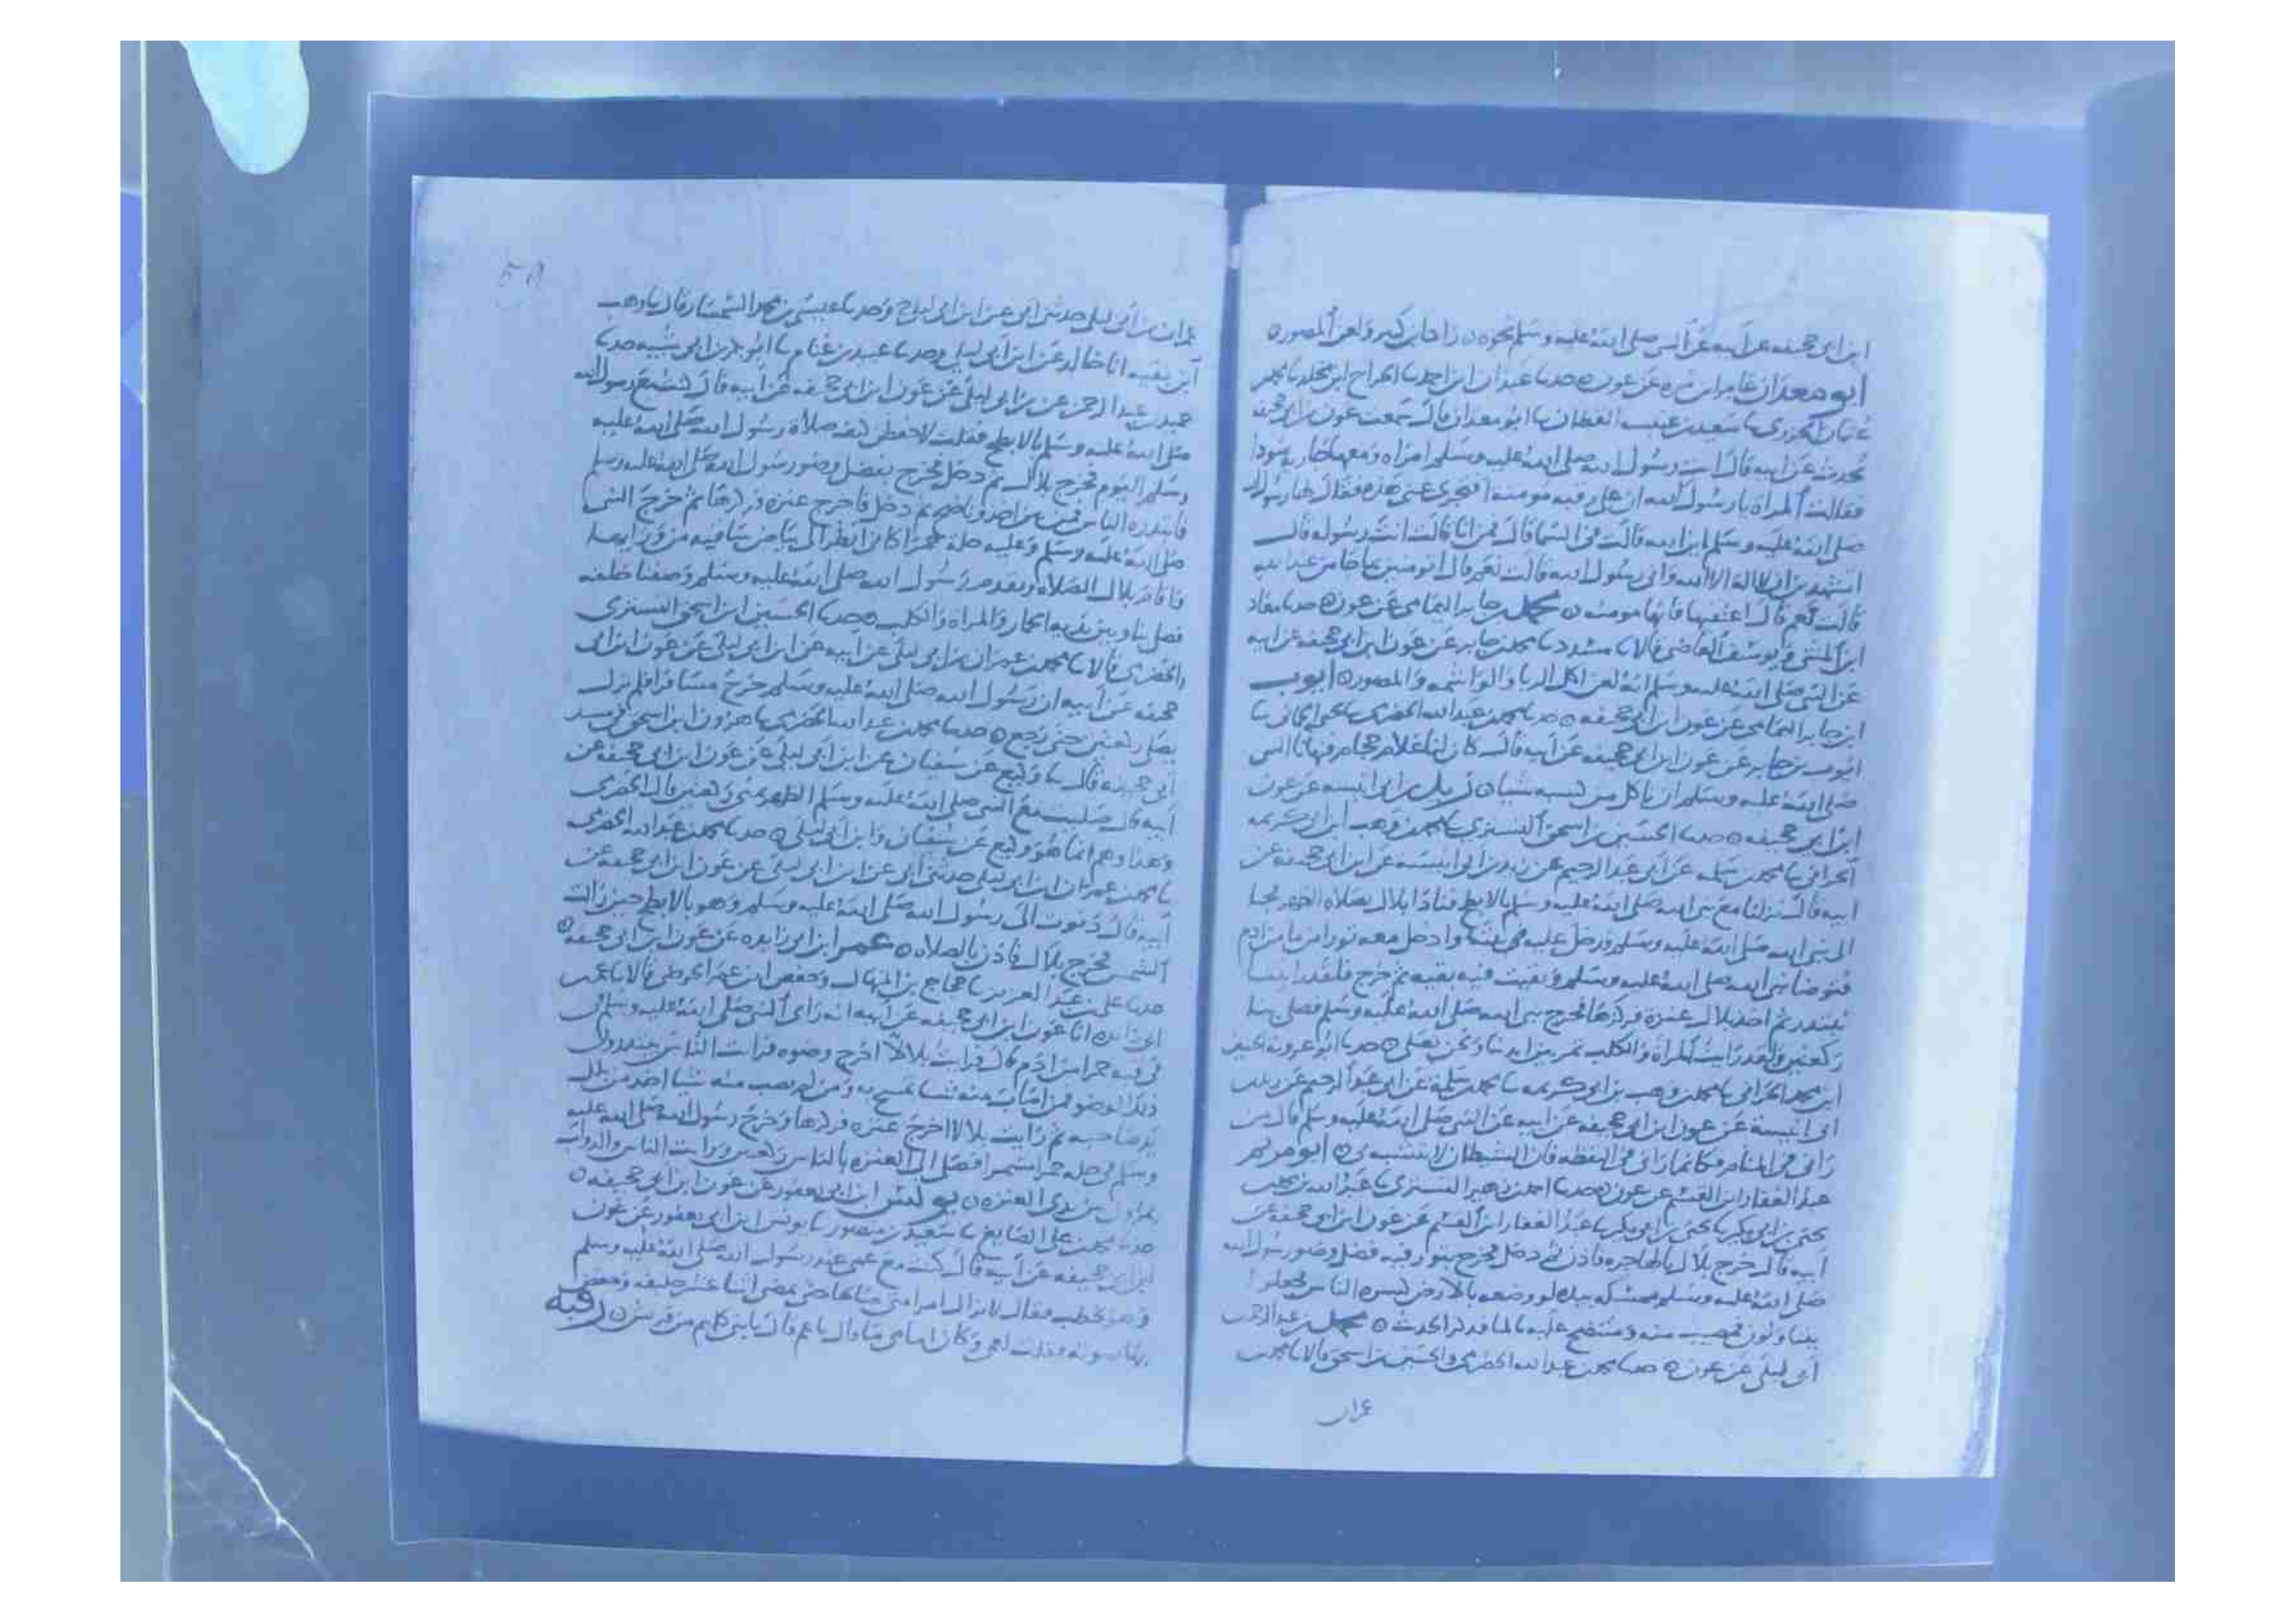 ابن ابي جحيفه عن ابيه عن النبي صلى الله عليه وسلم نحوه زاد ابن كبير ولعن المصوره
ابو معدان عامر ابن مره عن عون حدثنا عبدان ابن احمد ثنا الجراح ابن مخلد ثنا محمد
عثمان الجزرى ثنا سعيد بن عنبسه القطان ثنا ابو معدان قال سمعت عون بن ابي جحيفه
يحدث عن ابيه قال اتت رسول الله صلى الله عليه وسلم امراه ومعها جاريه سودا
فقالت المراه يا رسول الله ان علي رقبه مومنه افتجزى عني هذه فقال لها رسول الله
صلى الله عليه وسلم اين الله قالت في السما قال فمن انا قالت انت رسوله قال
اتشهدين ان لا اله الا الله واني رسول الله قالت نعم قال اتومنين بما جا من عند الله
قالت نعم قال اعتقيها فانها مومنه محمد بن جابر اليمامي عن عون حدثنا معاذ
ابن المثنى ويوسف القاضي قالا ثنا مسدد ثنا محمد بن جابر عن عون ابن ابي جحيفه عن ابيه
عن النبي صلى الله عليه وسلم انه لعن اكل الربا والواشمه والمصوره ايوب
ابن جابر اليمامي عن عون ابن ابي جحيفه حدثنا محمد بن عبد الله الحضرمي ثنا يحيى الحماني ثنا
ايوب بن جابر عن عون ابن ابي جحيفه عن ابيه قال كان لنا غلام حجام فنهانا النبي
صلى الله عليه وسلم ان ناكل من كسبه شيا زيد بن ابي انيسه عن عون
ابن ابي جحيفه حدثنا الحسين بن اسحق التستري ثنا محمد بن وهب ابن ابي كريمه
الحراني ثنا محمد بن سلمه عن ابي عبد الرحيم عن زيد بن ابي انيسه عن ابن ابي جحيفه عن
ابيه قال نزلنا مع نبي الله صلى الله عليه وسلم بالابطح فنادا بلال بصلاه الظهر فجا
الى نبي الله صلى الله عليه وسلم فدخل عليه وادخل معه تورا من ما من ادم
فتوضا نبي الله صلى الله عليه وسلم وبقيت فيه بقيه ثم خرج فلقد راينا
يبتدر ثم اخذ بلال عنزه فركزها فخرج نبي الله صلى الله عليه وسلم فصلى بنا
ركعتين ولقد رايت المراه والكلب تمر بين ايدينا ونحن نصلي حدثنا ابو عروبه الحسين
ابن محمد الحراني ثنا محمد بن وهب بن ابي كريمه ثنا محمد بن سلمة عن ابي عبد الرحيم عن زيد بن
ابي انيسة عن عون ابن ابي جحيفه عن ابيه عن النبي صلى الله عليه وسلم قال من
راني في المنام فكانما راني في اليقظه فان الشيطان لا يتشبه بي ابو مريم
عبد الغفار ابن القسم عن عون حدثنا احمد بن زهير التستري ثنا عبد الله بن
يحيى بن ابي بكير ثنا يحيى بن ابي بكير ثنا عبد الغفار ابن القسم عن عون ابن ابي جحيفه عن
ابيه قال خرج بلال بالهاجره فاذن ثم دخل فخرج بتور فيه فضل وضو رسول الله
صلى الله عليه وسلم يمسكه بيده لو وضعه بالارض كسره الناس فجعلوا
يتناولون فمصيب منه ومنتضح عليه الحدث محمد بن عبد الرحمن
ابي ليلى عن عون حدثنا محمد بن عبد الله الحضرمي والحسين بن اسحق قالا ثنا محمد بن
عمران
50
عمران بن ابي ليلى حدثني ابي عن ابن ابي ليلى ح وحدثنا عيسى بن محمد السمسار قال ثنا وهب
ابن بقيه انا خالد عن ابن ابي ليلى وحدثنا عبيد بن غنام ثنا ابو بكر بن ابي شيبه حدثنا
حميد بن عبد الرحمن عن بن ابي ليلى عن عون ابن ابي جحيفه عن ابيه قال رسول الله
صلى الله عليه وسلم بالابطح فقلت لاحفظن صلاة رسول الله صلى الله عليه
وسلم اليوم فخرج بلال ثم دخل فخرج بفضل وضو رسول الله صلى الله عليه وسلم
فابتدره الناس فمن بين اخذ وناضح ثم دخل فاخرج عنزه فركزها ثم خرج النبي
صلى الله عليه وسلم وعليه حله حمرا كاني انظر الى بياض ساقيه من ورايها
فاقام بلال الصلاه وتقدم رسول الله صلى الله عليه وسلم وصفنا خلفه
فصل بنا وبين يديه الحمار والمراه والكلب حدثنا الحسين ابن اسحق التستري
والحضرمي قالا ثنا محمد بن عمران بن ابي ليلى عن ابيه عن ابن ابي ليلى عن عون ابن ابي
جحيفه عن ابيه ان رسول الله صلى الله عليه وسلم خرج مسافرا فلم يزل
يصلي ركعتين حتى رجع حدثنا محمد بن عبد الله الحضرمي ثنا هارون ابن اسحق
ابي جحيفه قال ثنا وكيع عن سفيان عن ابن ابي ليلى عن عون ابن ابي جحيفه عن
ابيه قال صليت مع النبي صلى الله عليه وسلم الظهر بمنى ركعتين قال الحضرمي
وهذا وهم انما هو وكيع عن سفيان وابن ابي ليلى حدثنا محمد بن عبد الله الحضرمي
ثنا محمد بن عمران ابن ابي ليلى حدثني ابي عن ابن ابي ليلى عن عون ابن ابي جحيفه عن
ابيه قال دنوت الى رسول الله صلى الله عليه وسلم وهو بالابطح حين زالت
الشمس فخرج بلال فاذن بالصلاه عمر ابن ابي زايده عن عون ابن ابي جحيفه
حدثنا علي بن عبد العزيز ثنا حجاج بن المنهال وحفص ابن عمر الحوضي قالا ثنا عمر بن
ابي زايده انا عون ابن ابي جحيفه عن ابيه انه راى النبي صلى الله عليه وسلم
في قبه حمرا من ادم قال فرايت بلالا اخرج وضوه فرايت الناس يبتدرون
ذلك الوضو فمن اصاب منه شيا تمسح به ومن لم يصب منه شيا اخذ من بلل
يد صاحبه ثم رايت بلالا اخرج عنزه فركزها وخرج رسول الله صلى الله عليه
وسلم في حله حمرا مشمرا فصلى الى العنزه بالناس ركعتين ورايت الناس والدواب
يمرون بين يدى العنزه يونس ابن ابي يعفور عن عون ابن ابي جحيفه
حدثنا محمد بن علي الصايغ ثنا سعيد بن منصور ثنا يونس ابن ابي يعفور عن عون
ابن ابي جحيفه عن ابيه قال كنت مع عمي عند رسول الله صلى الله عليه وسلم
وهو يخطب فقال لا يزال امر امتي صالحا حتى يمضي اثنا عشر خليفه وخفض
بها صوته فقلت لعمي وكان امامي ما قال يا عم قال يا بني كلهم من قريش رقبه